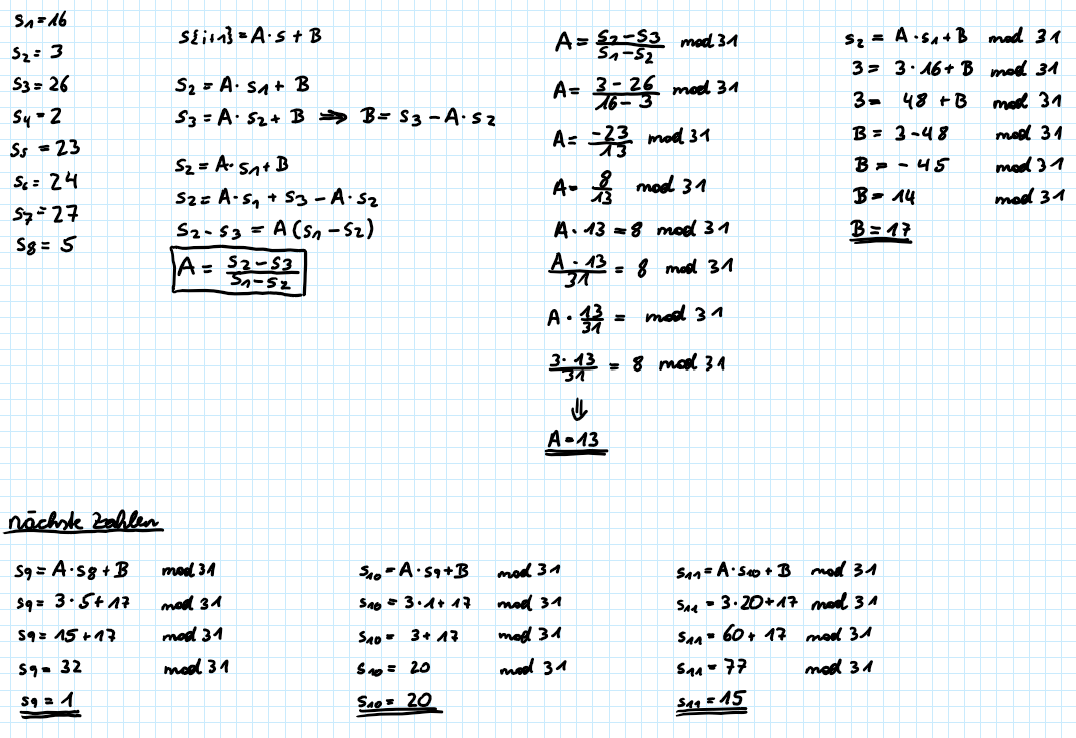 s1=16
s2=3
s3=26
s4=2
s5=23
s6=24
s7=27
s8=5
s{i+1}=A·s+B
s2=A·s1+B
s3=A·s2+B ⇒ B=s3-A·s2
s2=A·s1+B
s2=A·s1+s3-A·s2
s2-s3=A(s1-s2)
A=(s2-s3)/(s1-s2)
A=(s2-s3)/(s1-s2) mod 31
A=(3-26)/(16-3) mod 31
A=-23/13 mod 31
A=8/13 mod 31
A·13=8 mod 31
(A·13)/31=8 mod 31
A·13/31= mod 31
(3·13)/31=8 mod 31
⇓
A=13
s2=A·s1+B mod 31
3=3·16+B mod 31
3=48+B mod 31
B=3-48 mod 31
B=-45 mod 31
B=14 mod 31
B=17
nächste Zahlen
s9=A·s8+B mod 31
s9=3·5+17 mod 31
s9=15+17 mod 31
s9=32 mod 31
s9=1
s10=A·s9+B mod 31
s10=3·1+17 mod 31
s10=3+17 mod 31
s10=20 mod 31
s10=20
s11=A·s10+B mod 31
s11=3·20+17 mod 31
s11=60+17 mod 31
s11=77 mod 31
s11=15